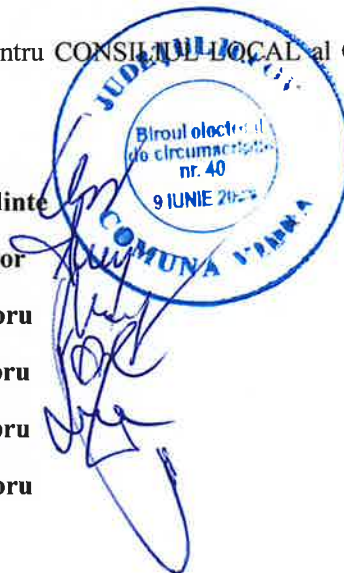 ntru CONSILIUL LOCAL al
JUDEȚUL ILFOV
Biroul electoral
de circumscripție
nr. 40
9 IUNIE
COMUNA VIDRA
dinte
or
bru
bru
bru
bru